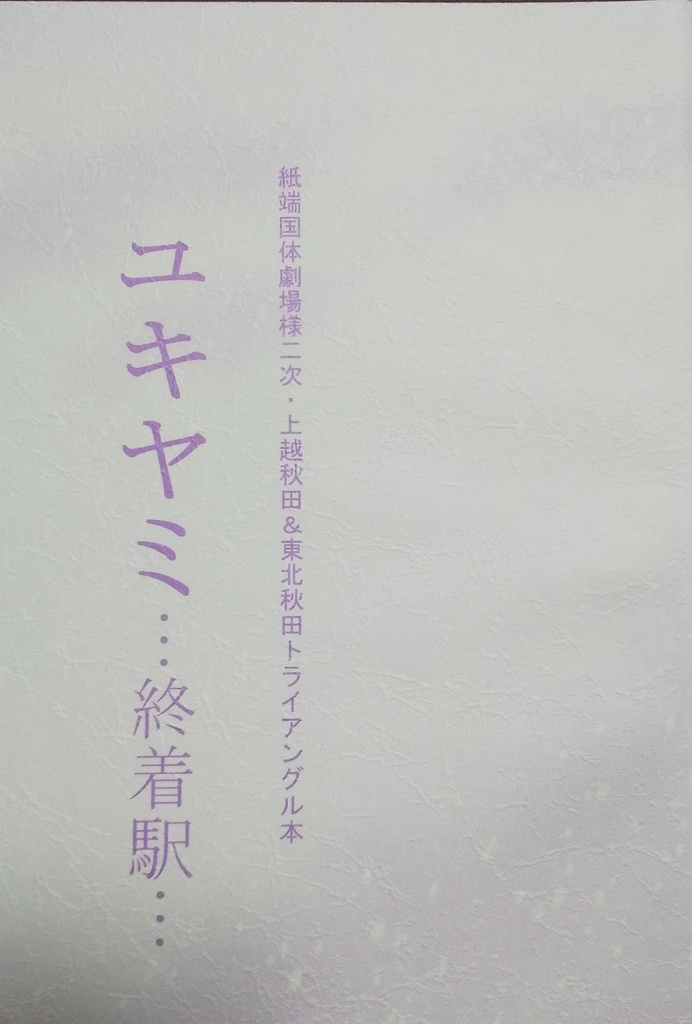 紙端国体劇場様二次・上越秋田&東北秋田トライアングル本
ユキヤミ…終着駅…